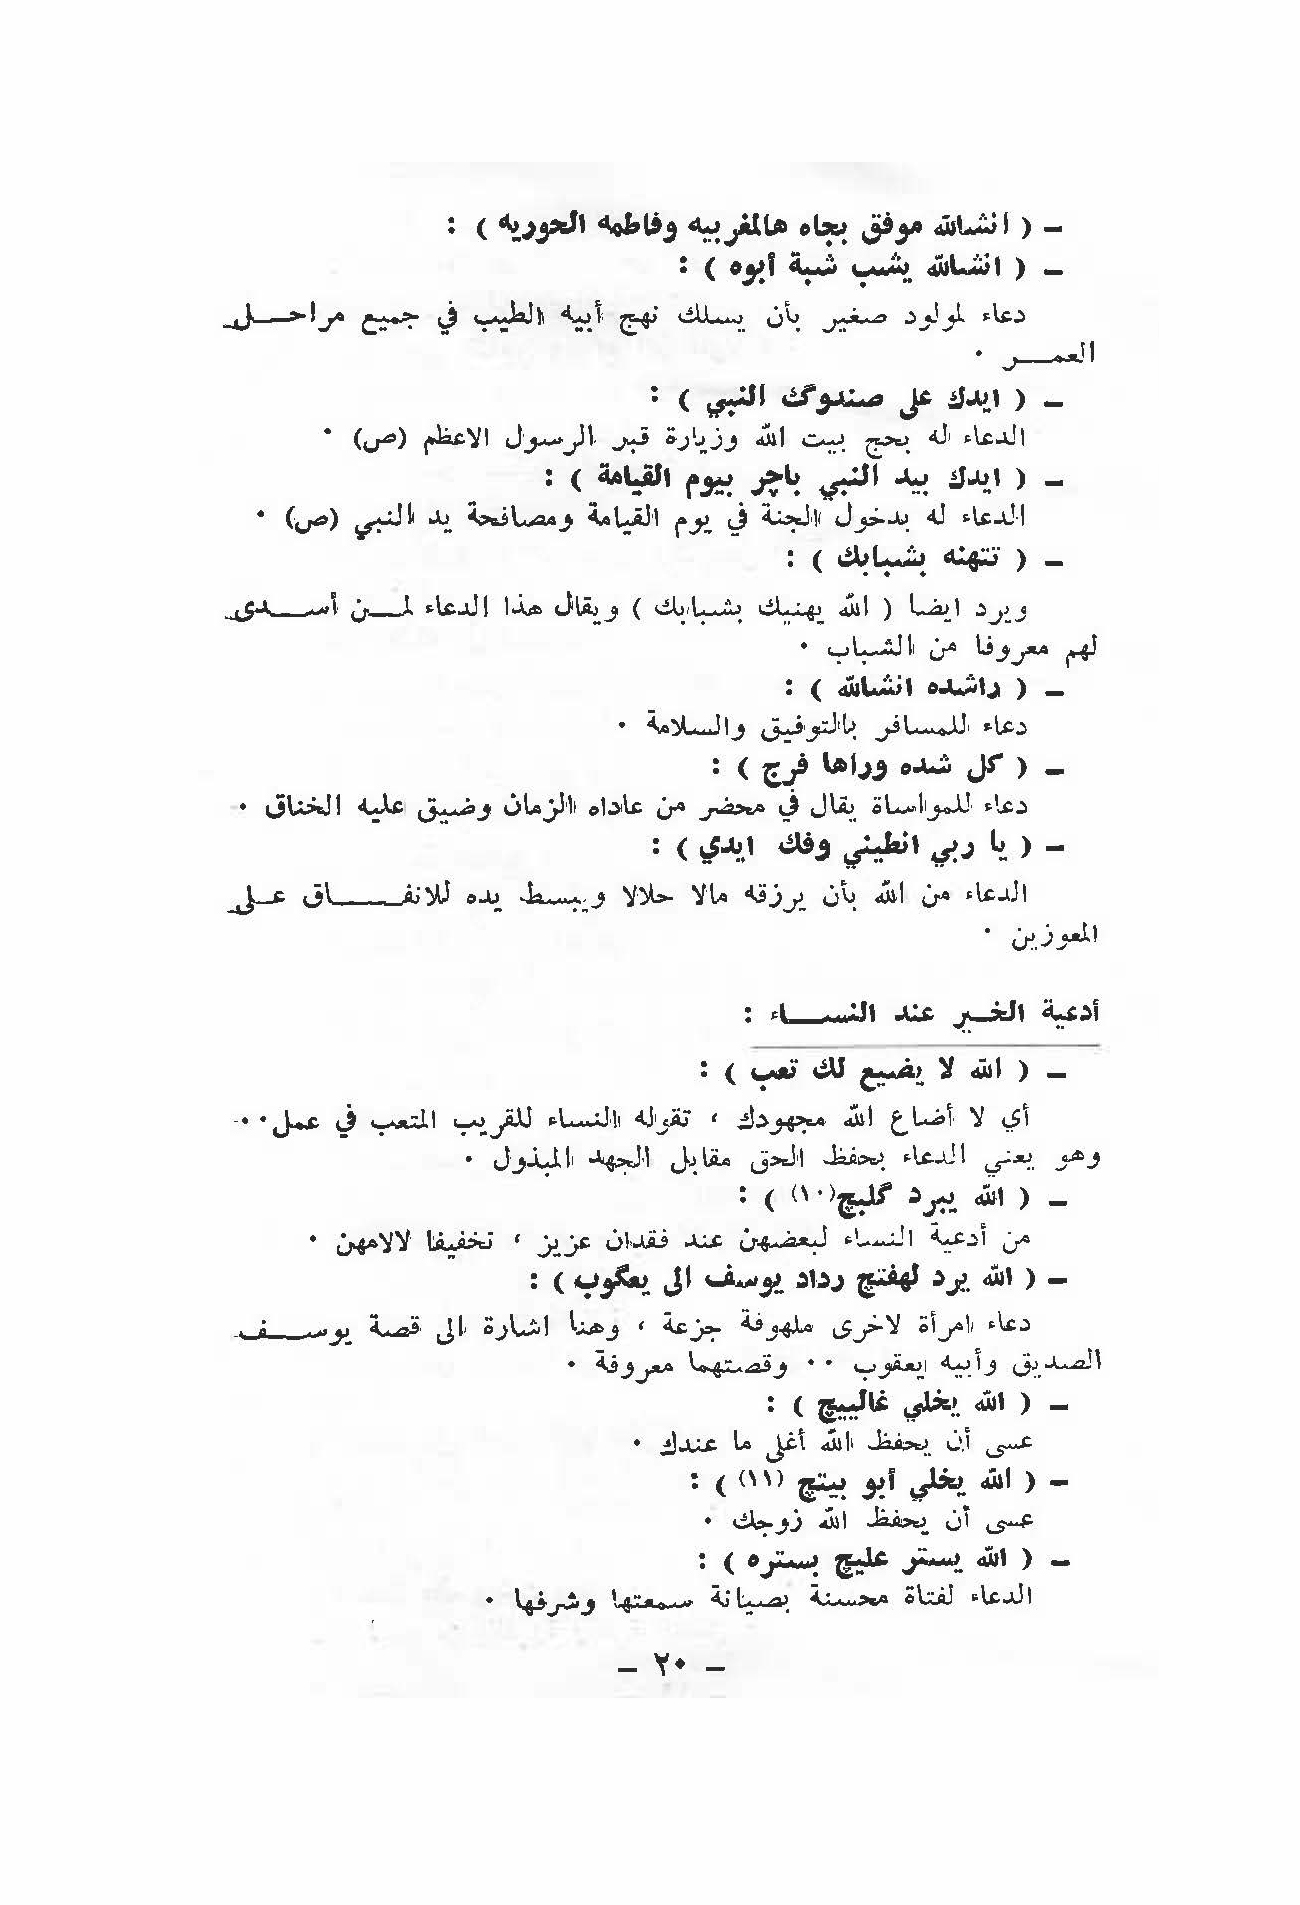 ـ ( انشالله موفق بجاه هالمغربيه وفاطمه الحوريه ) :
ـ ( انشالله يشب شبة أبوه ) :
دعاء لمولود صغير بأن يسلك نهج أبيه الطيب في جميع مراحـــل
العمــر ٠
ـ ( ايدك على صندوگ النبي ) :
الدعاء له بحج بيت الله وزيارة قبر الرسول الاعظم (ص) ٠
ـ ( ايدك بيد النبي باچر بيوم القيامة ) :
الدعاء له بدخول الجنة في يوم القيامة ومصافحة يد النبي (ص) ٠
ـ ( تتهنه بشبابك ) :
ويرد ايضا ( الله يهنيك بشبابك ) ويقال هذا الدعاء لمــن أســـدى
لهم معروفا من الشباب ٠
ـ ( راشده انشالله ) :
دعاء للمسافر بالتوفيق والسلامة ٠
ـ ( كل شده وراها فرج ) :
دعاء للمواساة يقال في محضر من عاداه الزمان وضيق عليه الخناق ٠
ـ ( يا ربي انطيني وفك ايدي ) :
الدعاء من الله بأن يرزقه مالا حلالا ويبسط يده للانفـــــاق عــلى
المعوزين ٠
أدعية الخــير عند النســـاء :
ـ ( الله لا يضيع لك تعب ) :
أي لا أضاع الله مجهودك ، تقوله النساء للقريب المتعب في عمل٠٠٠
وهو يعني الدعاء بحفظ الحق مقابل الجهد المبذول ٠
ـ ( الله يبرد گلبچ(١٠) ) :
من أدعية النساء لبعضهن عند فقدان عزيز ، تخفيفا لالامهن ٠
ـ ( الله يرد لهفتچ رداد يوسف الى يعگوب ) :
دعاء امرأة لاخرى ملهوفة جزعة ، وهنا اشارة الى قصة يوســـف
الصديق وأبيه يعقوب ٠٠ وقصتهما معروفة ٠
ـ ( الله يخلي غالييچ ) :
عسى أن يحفظ الله أغلى ما عندك ٠
ـ ( الله يخلي أبو بيتچ (١١) ) :
عسى أن يحفظ الله زوجك ٠
ـ ( الله يستر عليچ بستره ) :
الدعاء لفتاة محسنة بصيانة سمعتها وشرفها ٠
ـ ٢٠ ـ